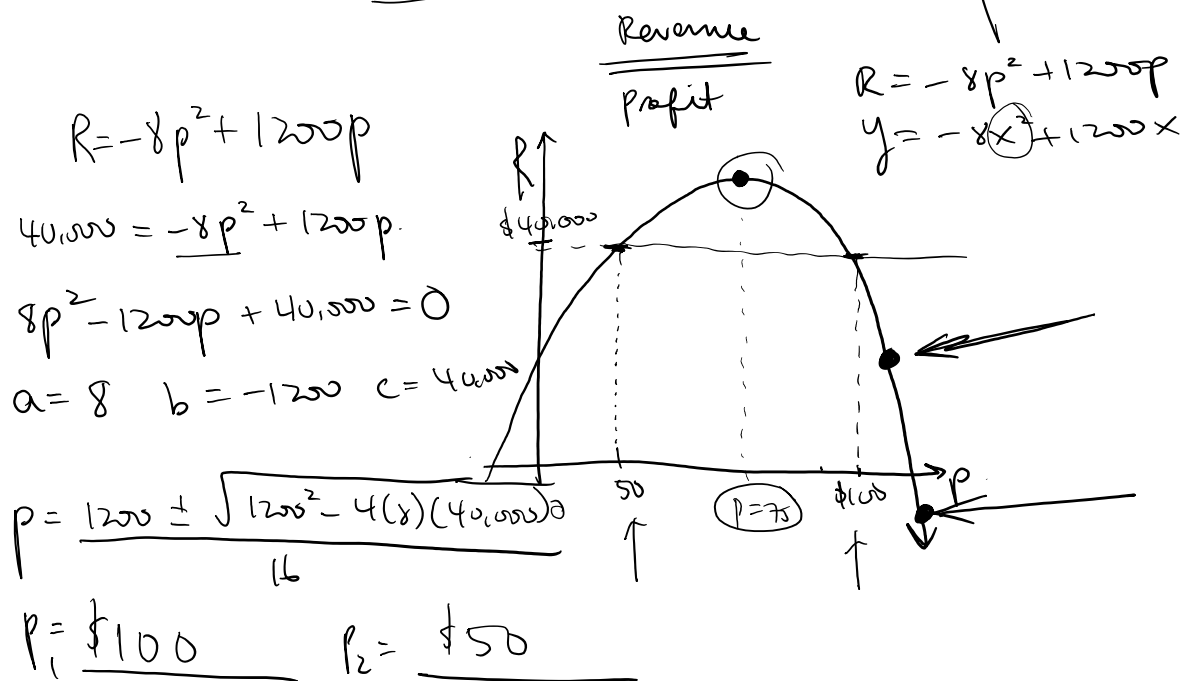 Revenue
Profit
R = -8p² + 1200p
y = -8x² + 1200x
R = -8p² + 1200p
40,000 = -8p² + 1200p
8p² - 1200p + 40,000 = 0
a = 8 b = -1200 c = 40,000
p = 1200 ± √1200² - 4(8)(40,000)
16
p₁ = $100 p₂ = $50
R
$40,000
50
p = 75
$100
p